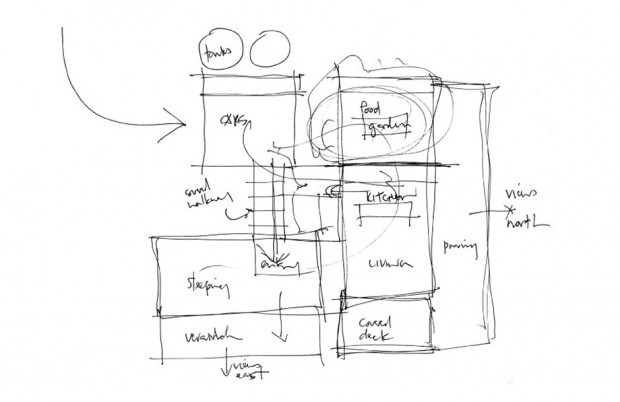 tanks
cars
food
garden
covered
walkway
kitchen
views
north
paving
entry
living
sleeping
verandah
covered
deck
views
east